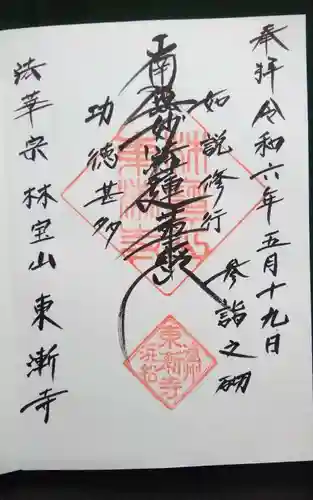 奉拝 令和六年五月十九日
参詣之砌
如説修行
南無妙法蓮華経
功徳甚多
法華宗 林宝山 東漸寺
東漸寺
浜松